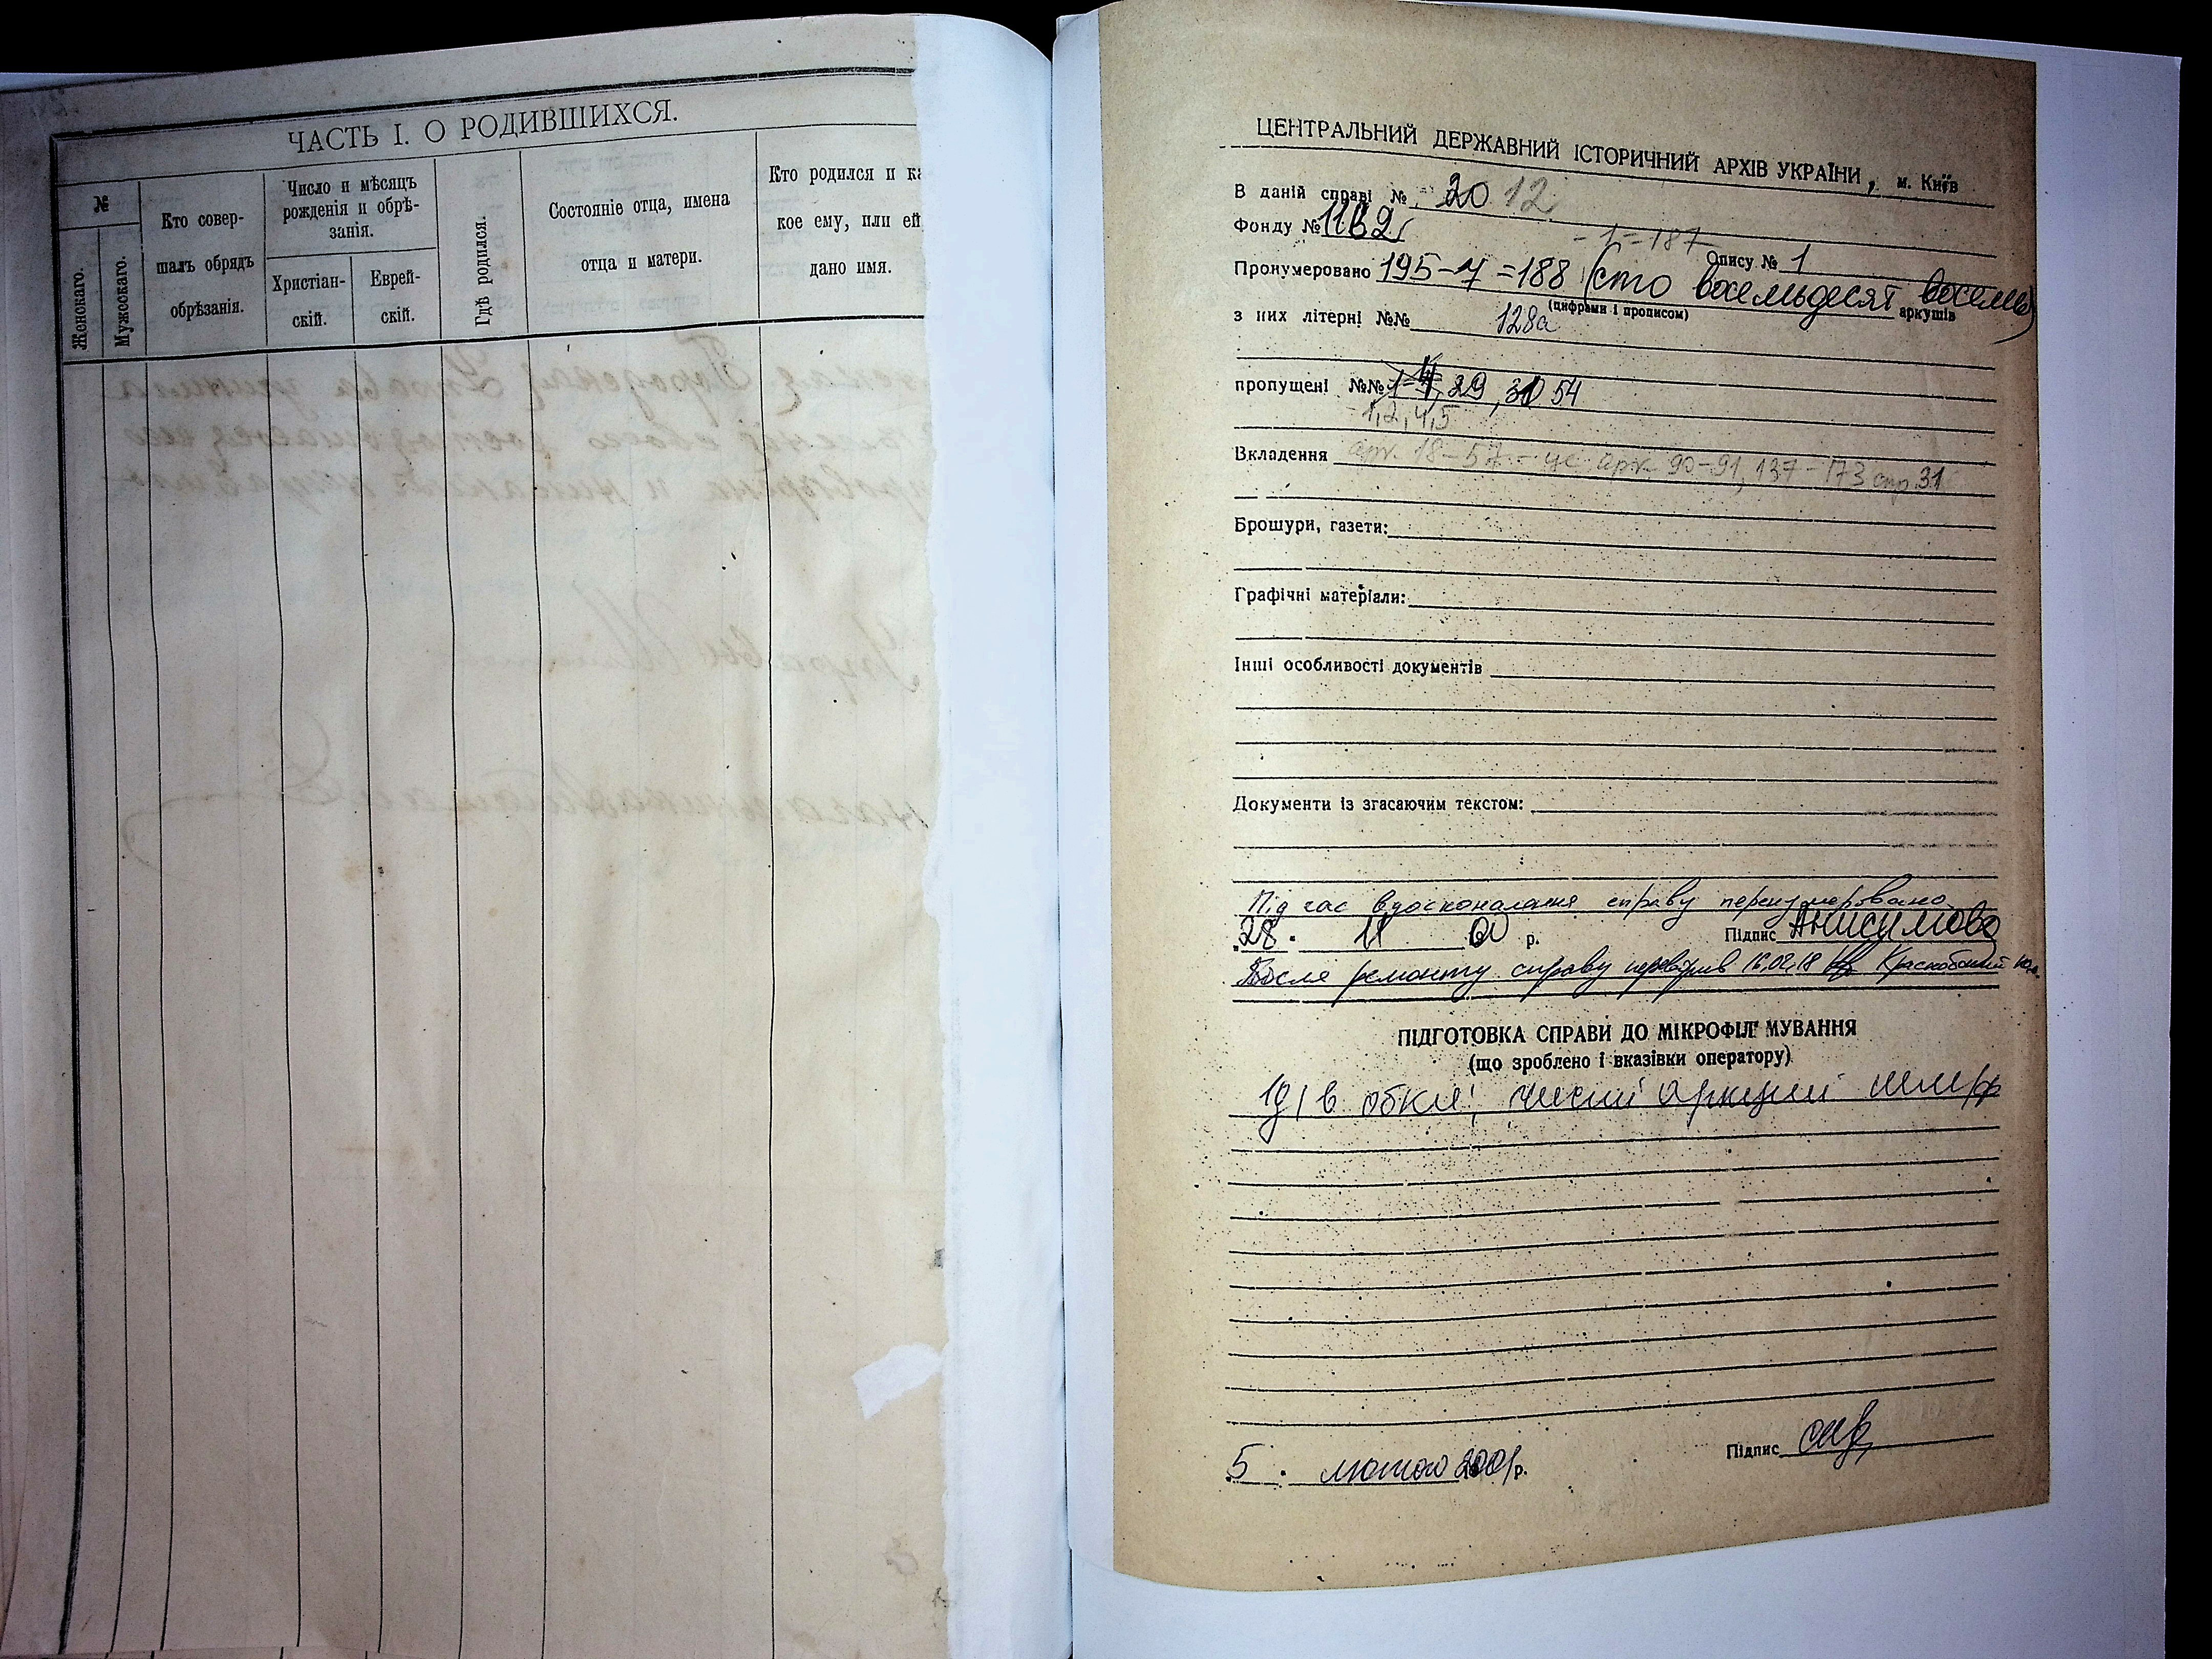 ЧАСТЬ I. О РОДИВШИХСЯ.
№
Женскаго.
Мужескаго.
Кто совер-
шалъ обрядъ
обрѣзанія.
Число и мѣсяцъ
рожденія и обрѣ-
занія.
Христіан-
скій.
Еврей-
скій.
Гдѣ родился.
Состояніе отца, имена
отца и матери.
Кто родился и ка
кое ему, или ей
дано имя.
ЦЕНТРАЛЬНИЙ ДЕРЖАВНИЙ ІСТОРИЧНИЙ АРХІВ УКРАЇНИ, м. Київ
В даній справі № 20 12
Фонду № 1162
- 1 = 187
Опису № 1
Пронумеровано 195-7=188 (сто восемьдесят восемь)
(цифрами і прописом) аркушів
з них літерні №№ 128а
пропущені №№ 1-4, 29, 54
1,2,4,5
Вкладення арк. 18-57 - це арк. 90-91, 137-173 спр. 31
Брошури, газети:
Графічні матеріали:
Інші особливості документів
Документи із згасаючим текстом:
Під час вдосконалення справу перенумеровано
28. р. Підпис Анисимова
После ремонту справу перевірив 16.02.18
ПІДГОТОВКА СПРАВИ ДО МІКРОФІЛЬМУВАННЯ
(що зроблено і вказівки оператору)
в обкл;
Підпис
5. лютого 2001 р.